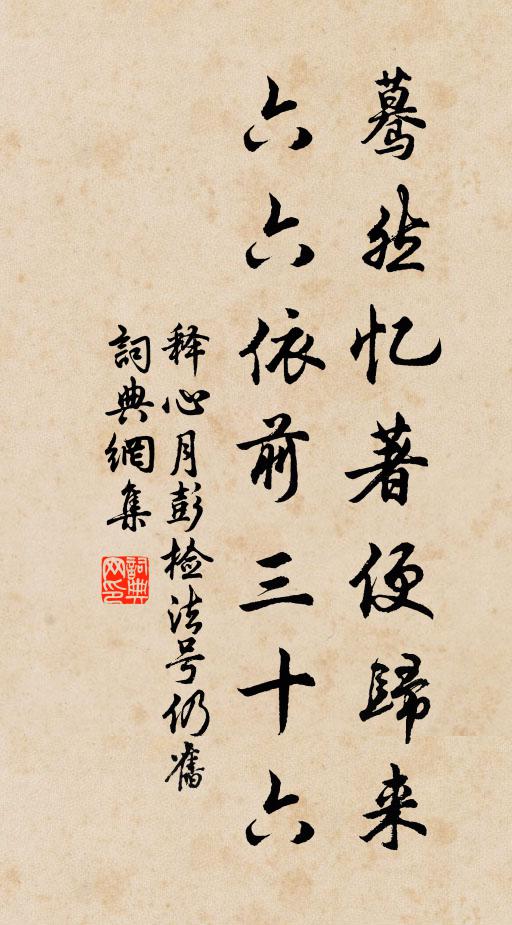 蓦然忆著便归来
六六依前三十六
释心月彭检法号仍旧
词典网集
词典网印